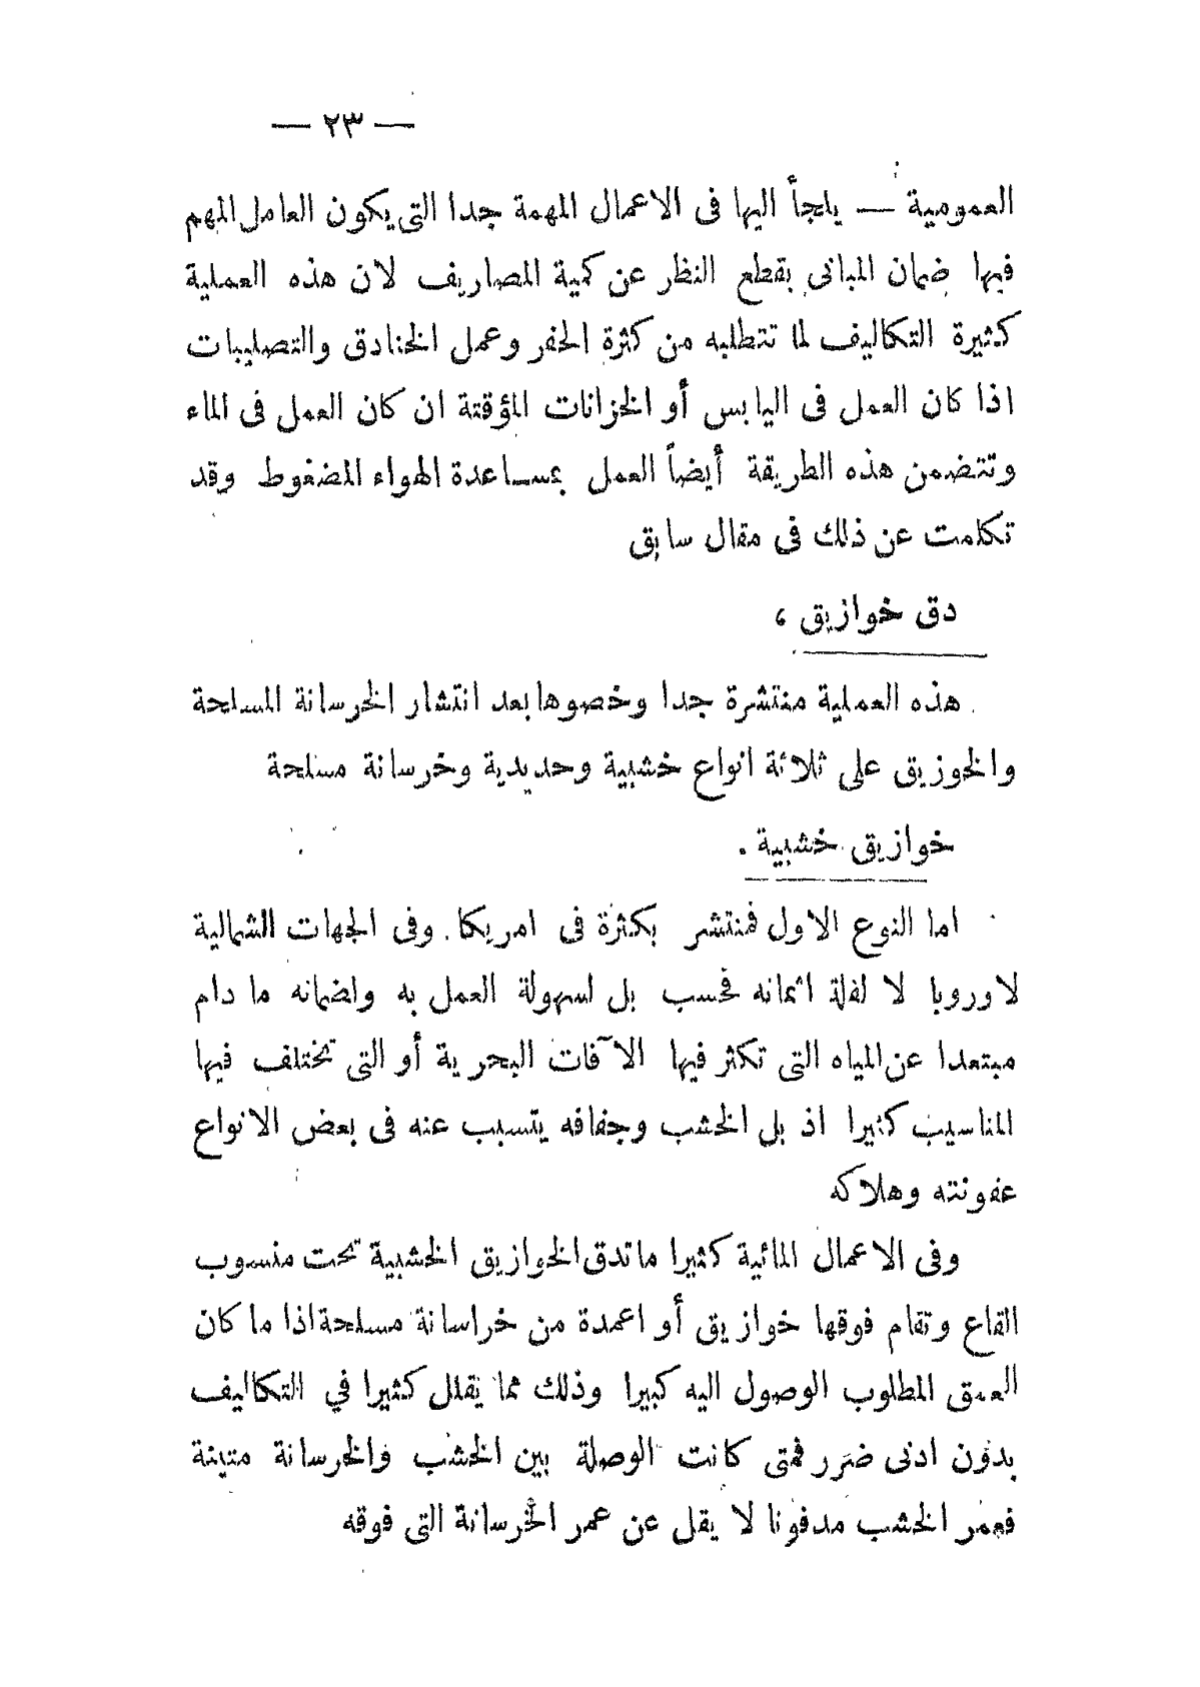 — ٢٣ —
العمومية — يلجأ اليها فى الاعمال المهمة جدا التى يكون العامل المهم
فيها ضمان المبانى بقطع النظر عن كمية المصاريف لان هذه العملية
كثيرة التكاليف لما تتطلبه من كثرة الحفر وعمل الخنادق والتصليبات
اذا كان العمل فى اليابس أو الخزانات المؤقتة ان كان العمل فى الماء
وتتضمن هذه الطريقة أيضاً العمل بمساعدة الهواء المضغوط وقد
تكلمت عن ذلك فى مقال سابق
دق خوازيق ،
هذه العملية منتشرة جدا وخصوها بعد انتشار الخرسانة المسلحة
والخوزيق على ثلاثة انواع خشبية وحديدية وخرسانة مسلحة
خوازيق خشبية .
اما النوع الاول فمنتشر بكثرة فى امريكا . وفى الجهات الشمالية
لاوروبا لا لقلة اثمانه فحسب بل لسهولة العمل به ولضمانه ما دام
مبتعدا عن المياه التى تكثر فيها الآفات البحرية أو التى تختلف فيها
المناسيب كثيرا اذ بل الخشب وجفافه يتسبب عنه فى بعض الانواع
عفونته وهلاكه
وفى الاعمال المائية كثيرا ما تدق الخوازيق الخشبية تحت منسوب
القاع وتقام فوقها خوازيق أو اعمدة من خراسانة مسلحة اذا ما كان
العمق المطلوب الوصول اليه كبيرا وذلك مما يقلل كثيرا في التكاليف
بدون ادنى ضرر فمتى كانت الوصلة بين الخشب والخرسانة متينة
فعمر الخشب مدفونا لا يقل عن عمر الخرسانة التى فوقه